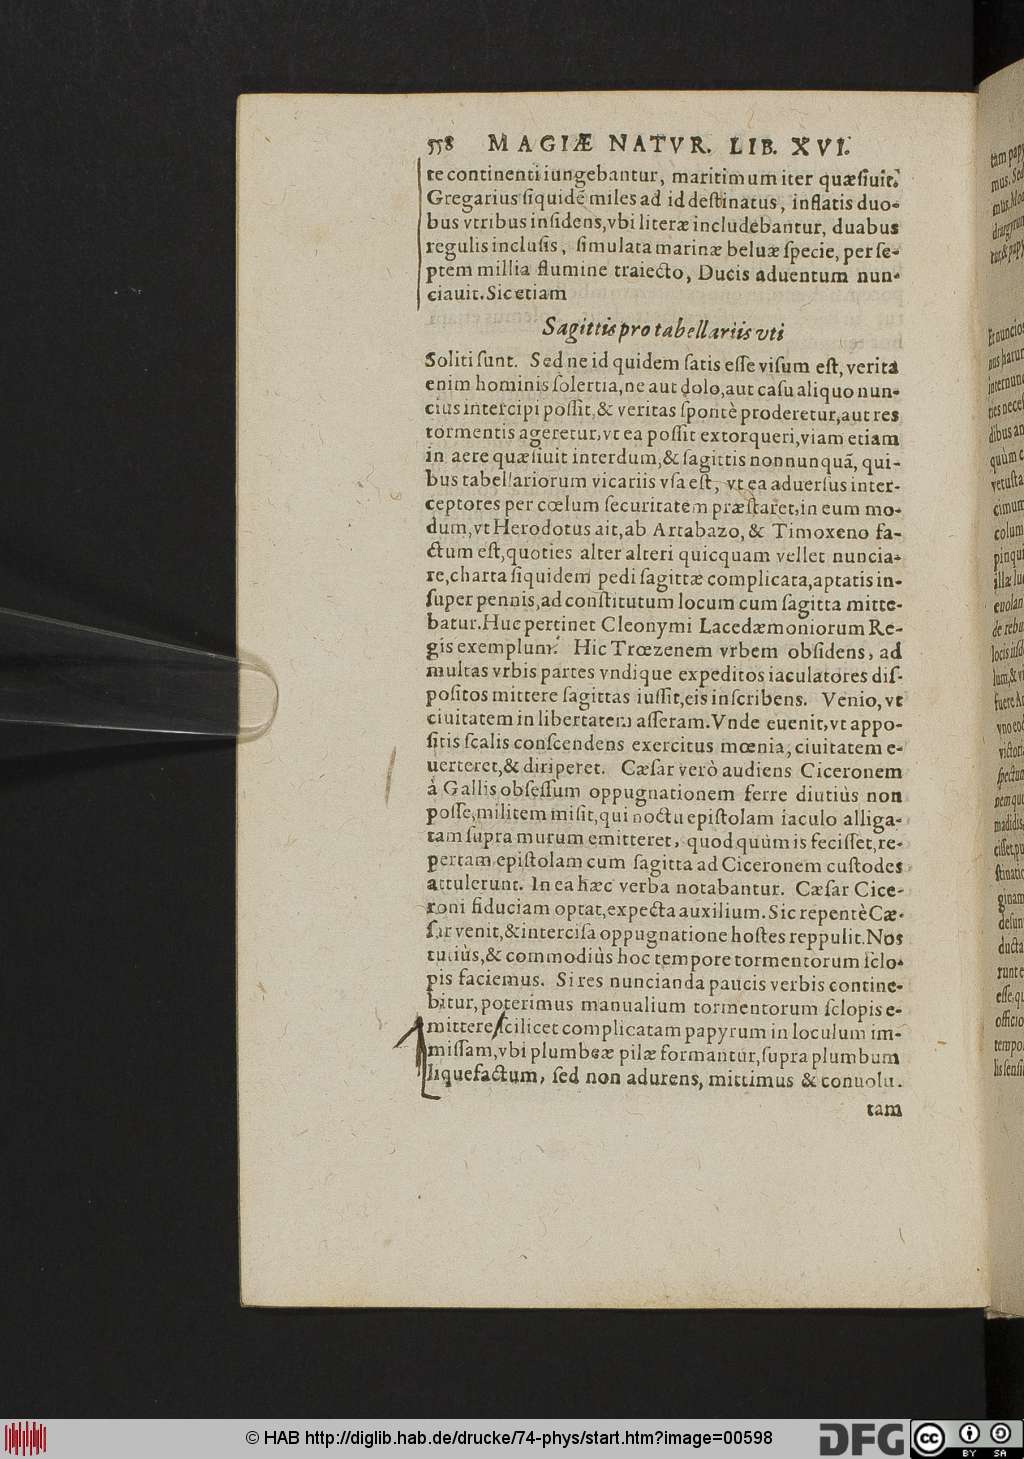 558 MAGIÆ NATVR. LIB. XVI.
te continenti iungebantur, maritimum iter quæſiuit.
Gregarius ſiquidẽ miles ad id deſtinatus, inflatis duo-
bus vtribus inſidens, vbi literæ includebantur, duabus
regulis incluſis, ſimulata marinæ beluæ ſpecie, per ſe-
ptem millia flumine traiecto, Ducis aduentum nun-
ciauit. Sic etiam
Sagittis pro tabellariis vti
Soliti ſunt. Sed ne id quidem ſatis eſſe viſum eſt, verita
enim hominis ſolertia, ne aut dolo, aut caſu aliquo nun-
cius intercipi poſſit, & veritas ſpontè proderetur, aut res
tormentis ageretur, vt ea poſſit extorqueri, viam etiam
in aere quæſiuit interdum, & ſagittis nonnunquã, qui-
bus tabellariorum vicariis vſa eſt, vt ea aduerſus inter-
ceptores per cœlum ſecuritatem præſtaret, in eum mo-
dum, vt Herodotus ait, ab Artabazo, & Timoxeno fa-
ctum eſt, quoties alter alteri quicquam vellet nuncia-
re, charta ſiquidem pedi ſagittæ complicata, aptatis in-
ſuper pennis, ad conſtitutum locum cum ſagitta mitte-
batur. Huc pertinet Cleonymi Lacedæmoniorum Re-
gis exemplum. Hic Trœzenem vrbem obſidens, ad
multas vrbis partes vndique expeditos iaculatores diſ-
poſitos mittere ſagittas iuſſit, eis inſcribens. Venio, vt
ciuitatem in libertatem aſſeram. Vnde euenit, vt appo-
ſitis ſcalis conſcendens exercitus mœnia, ciuitatem e-
uerteret, & diriperet. Cæſar verò audiens Ciceronem
à Gallis obſeſſum oppugnationem ferre diutiùs non
poſſe, militem miſit, qui noctu epiſtolam iaculo alliga-
tam ſupra murum emitteret, quod quùm is feciſſet, re-
pertam epiſtolam cum ſagitta ad Ciceronem cuſtodes
attulerunt. In ea hæc verba notabantur. Cæſar Cice-
roni fiduciam optat, expecta auxilium. Sic repentè Cæ-
ſar venit, & interciſa oppugnatione hoſtes reppulit. Nos
tutiùs, & commodiùs hoc tempore tormentorum ſclo-
pis faciemus. Si res nuncianda paucis verbis contine-
bitur, poterimus manualium tormentorum ſclopis e-
mittere ſcilicet complicatam papyrum in loculum im-
miſſam, vbi plumbeæ pilæ formantur, ſupra plumbum
liquefactum, ſed non adurens, mittimus & conuolu.
tam
© HAB http://diglib.hab.de/drucke/74-phys/start.htm?image=00598
DFG
cc
BY SA